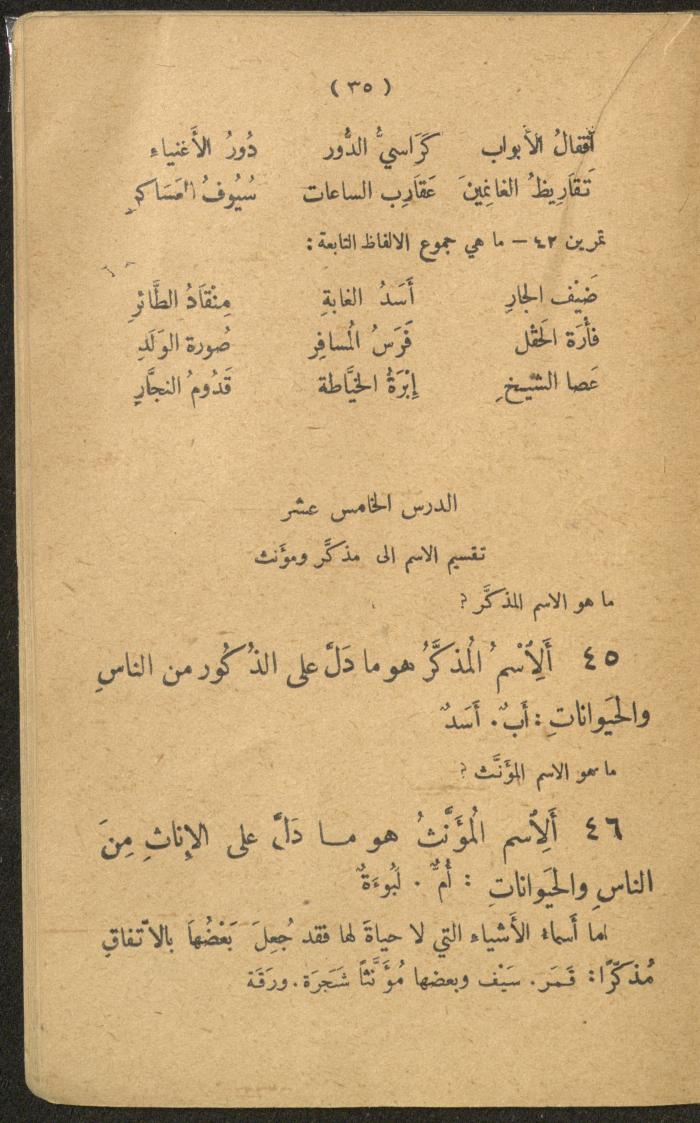 ( ٣٥ )
أقفالُ الأبواب كَرَاسيُّ الدُّور دُورُ الأَغنياء
تَقَارِيظُ الغانِمينَ عَقَارِب الساعات سُيُوفُ العَسَاكر
تمرين ٤٢ – ما هي جموع الالفاظ التابعة :
ضَيْف الجارِ أَسَدُ الغابةِ مِنْقَادُ الطَّائرِ
فأْرَة الحَقْل فَرَسُ المُسافِرِ صُورة الوَلَدِ
عَصا الشيخِ إِبْرَةُ الخيَّاطة قَدُومُ النجَّارِ
الدرس الخامس عشر
تقسيم الاسم الى مذكَّر ومؤَنث
ما هو الاسم المذكَّر ؟
٤٥ أَلِاسْمُ المُذكَّرُ هو ما دَلَّ على الذُكُور من الناسِ
والحَيَواناتِ : أَبٌ . أَسَدٌ
ما هو الاسم المؤَنَّث ؟
٤٦ أَلِاسم المُؤَنَّثُ هو ما دَلَّ على الإِناثِ مِنَ
الناسِ والحَيَواناتِ : أُمٌّ . لَبُوءَةٌ
اما أَسماء الأَشياء التي لا حياةَ لها فقد جُعِلَ بَعْضُهَا بالاتّفاقِ
مُذكَّرًا : قَمَر . سَيْف وبعضها مُؤَنَّثاً شَجَرَة . ورَقَة